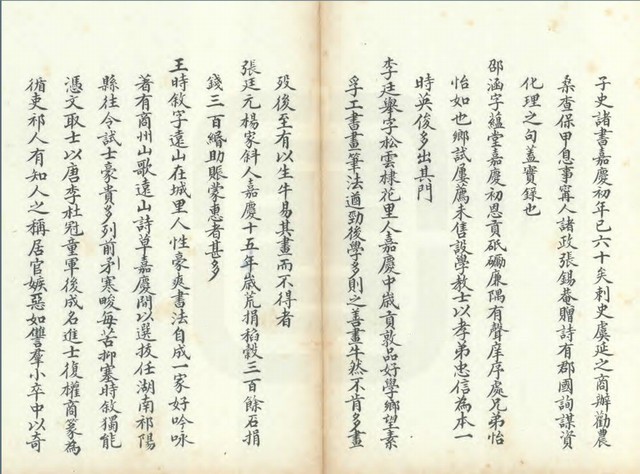 子史諸書嘉慶初年已六十矣刺史虞延之商辦勸農
桑查保甲息事甯人諸政張錫菴贈詩有郡國詢謀資
化理之句盖實錄也
邵涵字蘊堂嘉慶初恩貢砥礪廉隅有聲庠序處兄弟怡
怡如也鄉試屢薦未售設學教士以孝弟忠信為本一
時英俊多出其門
李廷舉字松雲棣花里人嘉慶中歲貢敦品好學鄉望素
孚工書畫筆法遒勁後學多則之善畫牛然不肯多畫
歿後至有以生牛易其畫而不得者
張廷元楊家斜人嘉慶十五年歲荒捐稻穀三百餘石捐
錢三百緡助賑蒙惠者甚多
王時敘字遠山在城里人性豪爽書法自成一家好吟咏
著有商州山歌遠山詩草嘉慶間以選拔任湖南祁陽
縣往令試士豪貴多列前矛寒畯每苦抑塞時敘獨能
憑文取士以唐李杜冠童軍後成名進士復權商篆為
循吏祁人有知人之稱居官嫉惡如讐羣小卒中以奇